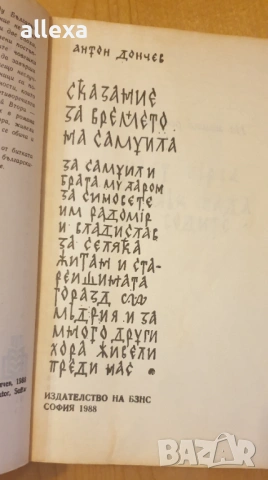 alexa
АНТОН ДОНЧЕВ
СКАЗАНИЕ
ЗА ВРЕМЕТО
НА САМУИЛА
ЗА САМУИЛ И
БРАТА МУ АРОН
ЗА СИНОВЕТЕ
ИМ РАДОМIР
И ВЛАДИСЛАВ
ЗА СЕЛЯКА
ЖИТАН И СТА-
РЕИШИНАТА
ГОРАЗД
МЪДРИЯ И ЗА
МНОГО ДРУГИ
ХОРА ЖИВЕЛИ
ПРЕДИ НАС
ИЗДАТЕЛСТВО НА БЗНС
СОФИЯ 1988
BAZAR